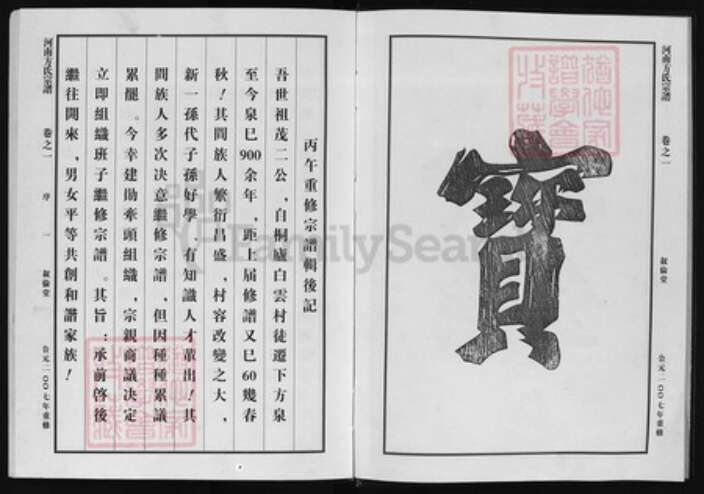 河南方氏宗譜
卷之一
敘倫堂
公元二〇〇七年重修
寶
丙午重修宗譜輯後記
吾世祖茂二公，自桐廬白雲村徒遷下方泉
至今泉巳900余年，距上屆修譜又巳60幾春
秋！其間族人繁衍昌盛，村容改變之大，
新一孫代子孫好學，有知識人才輩出！其
間族人多次決意繼修宗譜，但因種種累議
累擺。今幸建勛牽頭組織，宗親商議决定
立即組織班子繼修宗譜。其旨：承前啓後
繼往開來，男女平等共創和諧家族！
河南方氏宗譜
卷之一
序
一
敘倫堂
公元二〇〇七年重修
FamilySearch